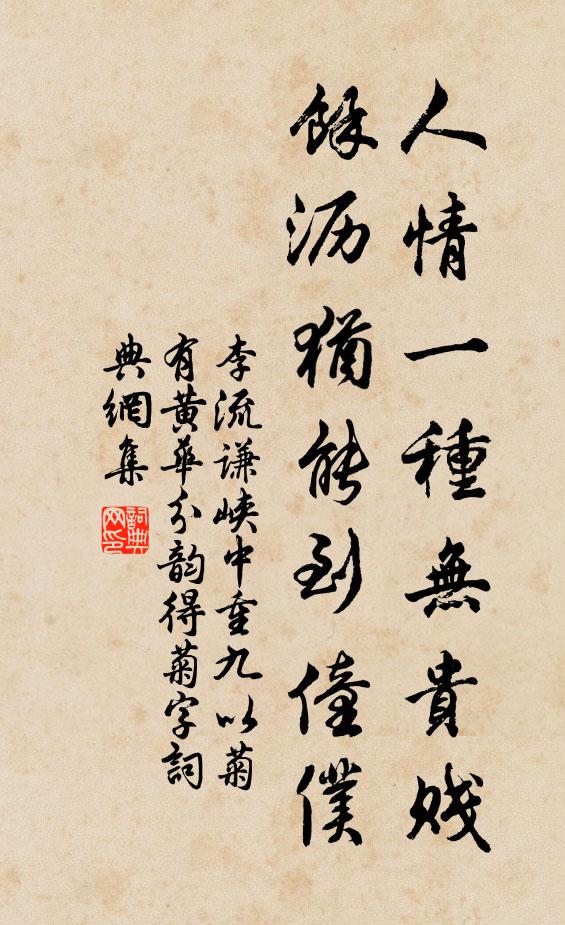 人情一種無貴賤
餘沥猶能到僮僕
李流谦峡中重九以菊
有黄華分韵得菊字詞
典網集
詞典
网印